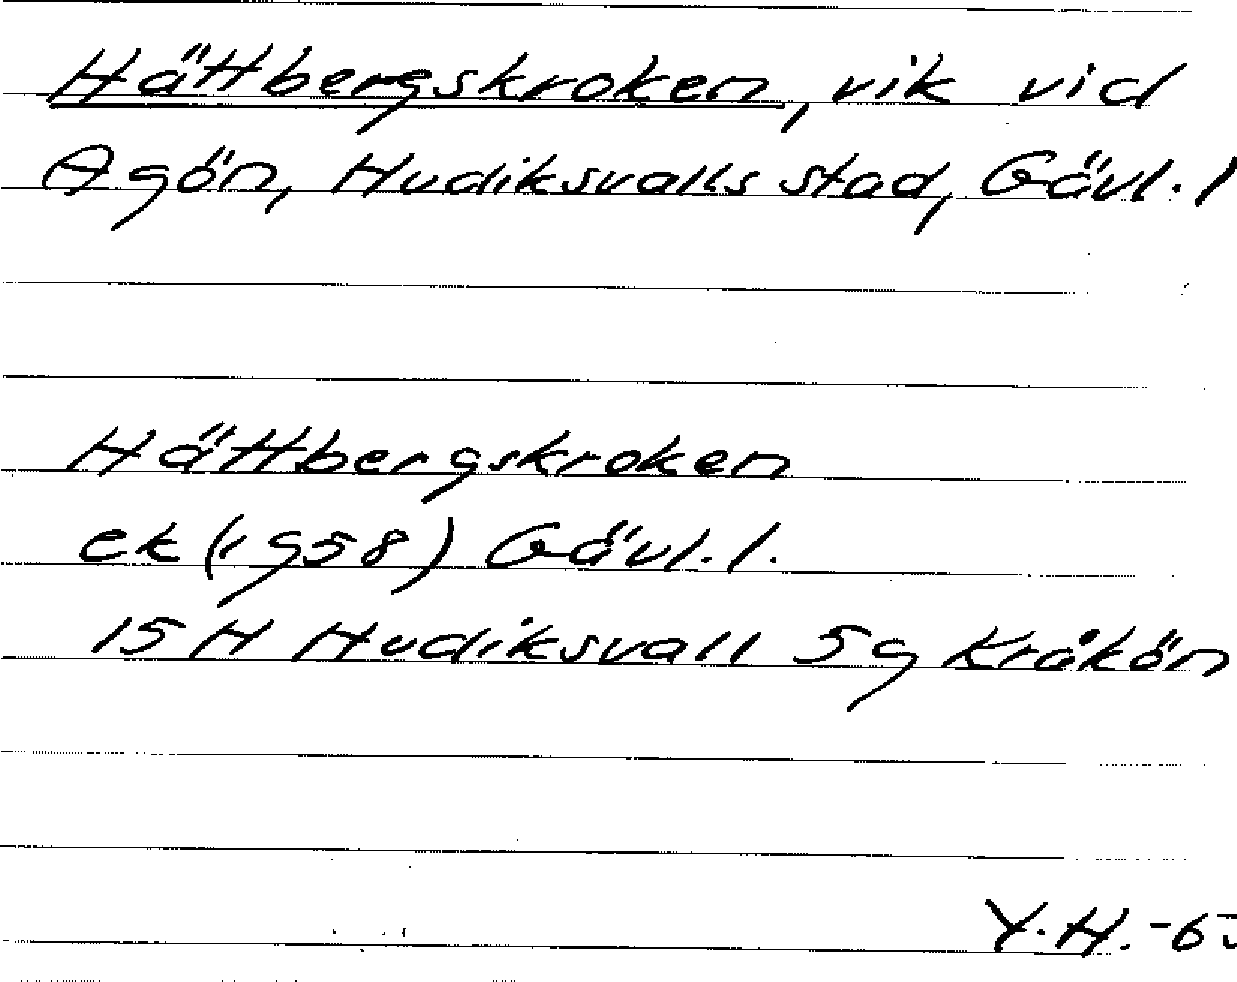 Hättbergskroken, vik vid
Agön, Hudiksvalls stad, Gävl. l
Hättbergskroken
ek (1958) Gävl. l.
15 H Hudiksvall 5g Kråkön
Y.H.